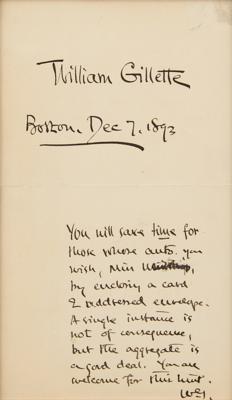 William Gillette
Boston, Dec 7, 1893
You will save time for
those whose auto. you
wish, Miss
by enclosing a card
& addressed envelope.
A single instance is
not of consequence,
but the aggregate is
a good deal. You are
welcome for this hint.
WG.